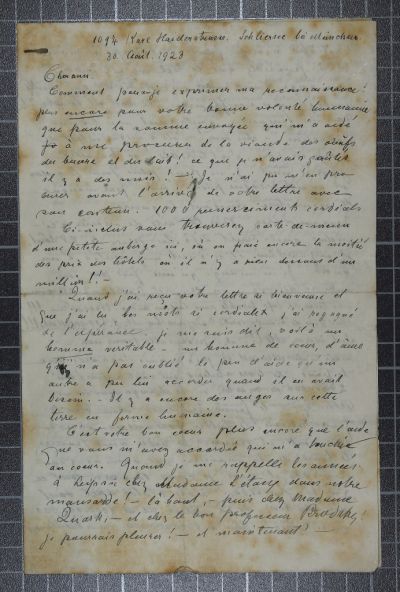 1094 Karl Haiderstrasse. Schliersee bei München.
30. Août. 1923
Comment puis-je exprimer ma reconnaissance!
plus encore pour votre bonne volonté
que pour la somme envoyée qui m'a aidé
à me procurer de la viande, des oeufs
du beurre et du lait! ce que je n'avais goûté
il y a des mois! — Je n'ai pu m'en pro
curer avant l'arrivée de votre lettre avec
son contenu. 1000 remerciements cordials
Ci-inclus vous trouverez carte
d'une petite auberge ici, où on paie encore la moitié
des prix des hôtels où il n'y a rien dessous d'un
million!!
Quand j'ai reçu votre lettre si bienveuse et
que j'ai lu les mots si cordiales, j'ai regagné
de l'espérance. je me suis dit, voilà un
homme veritable — un homme de coeur, d'âme
qui n'a pas oublié le peu d'aide qu'un
autre a pu lui accorder quand il en avait
besoin. — Il y a encore des anges sur cette
terre en forme humaine.
C'est votre bon coeur plus encore que l'aide
que vous m'avez accordée qui m'a touché
au coeur. Quand je me rappelle les années
à Leipsic chez Madame dans notre
mansarde! — là haut, — puis chez Madame
Quark, — et chez le bon professeur Brodsky!
je pourrais pleurer! — et maintenant!